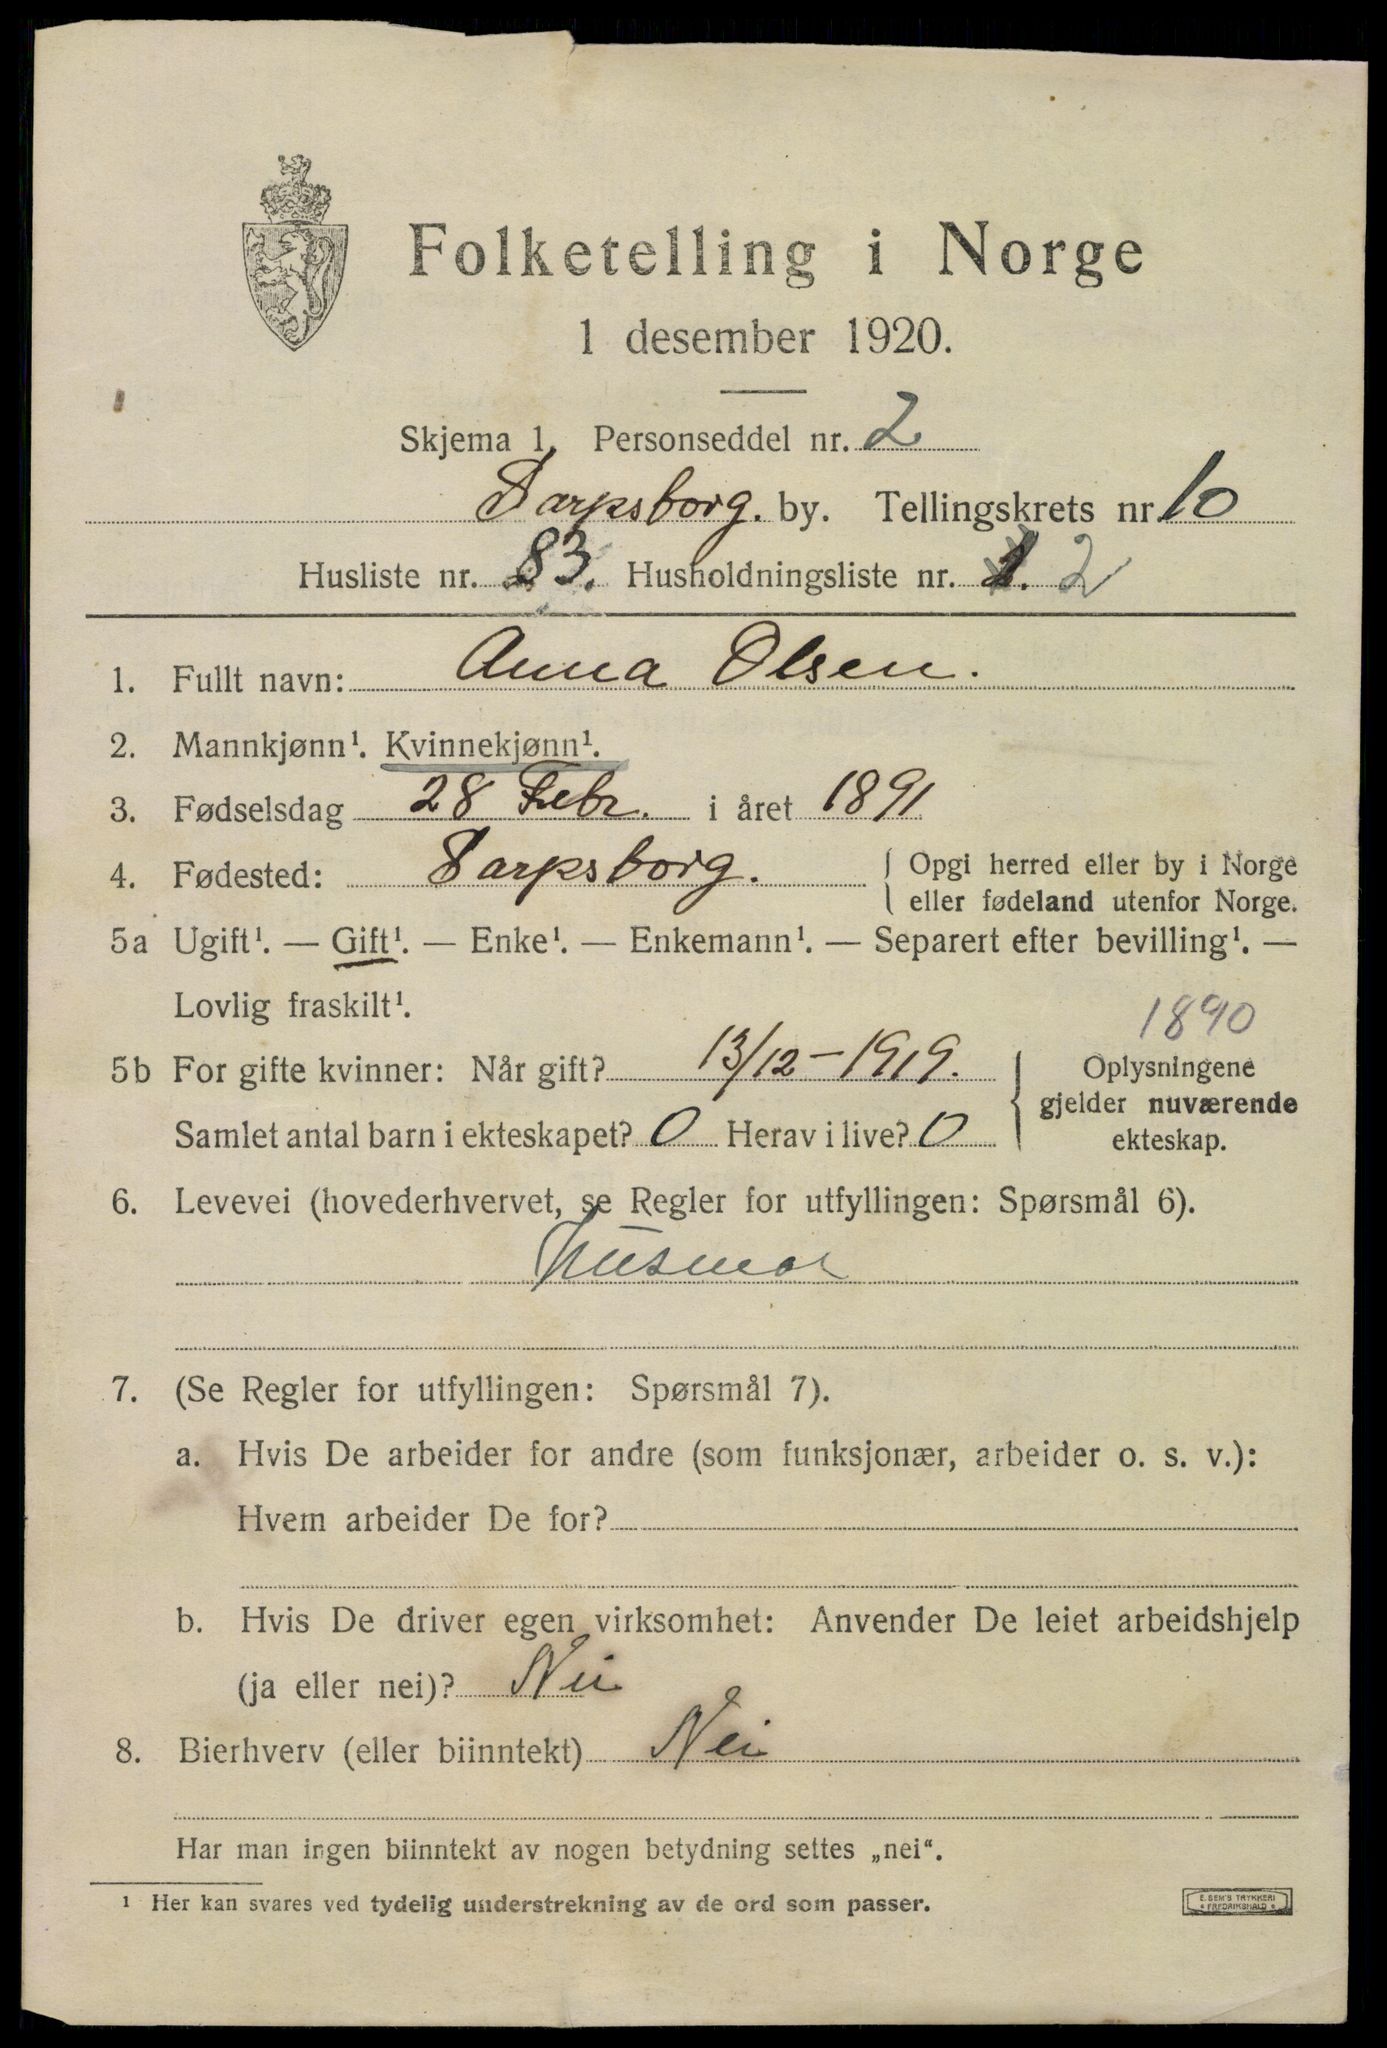 Folketelling i Norge
1 desember 1920.
Skjema 1. Personseddel nr. 2
Sarpsborg. by. Tellingskrets nr 10
Husliste nr. 83. Husholdningsliste nr. 1. 2
1. Fullt navn: Anna Olsen.
2. Mannkjønn¹. Kvinnekjønn¹.
3. Fødselsdag 28 Febr. i året 1891
4. Fødested: Sarpsborg. { Opgi herred eller by i Norge
eller fødeland utenfor Norge.
5a Ugift¹. — Gift¹. — Enke¹. — Enkemann¹. — Separert efter bevilling¹. —
Lovlig fraskilt¹.
1890
5b For gifte kvinner: Når gift? 13/12-1919. { Oplysningene
gjelder nuværende
Samlet antal barn i ekteskapet? 0 Herav i live? 0 ekteskap.
6. Levevei (hovederhvervet, se Regler for utfyllingen: Spørsmål 6).
Husmor
7. (Se Regler for utfyllingen: Spørsmål 7).
a. Hvis De arbeider for andre (som funksjonær, arbeider o. s. v.):
Hvem arbeider De for?
b. Hvis De driver egen virksomhet: Anvender De leiet arbeidshjelp
(ja eller nei)? Nei
8. Bierhverv (eller biinntekt) Nei
Har man ingen biinntekt av nogen betydning settes „nei“.
¹ Her kan svares ved tydelig understrekning av de ord som passer.
E. SEM'S TRYKKERI
* FREDRIKSHALD *